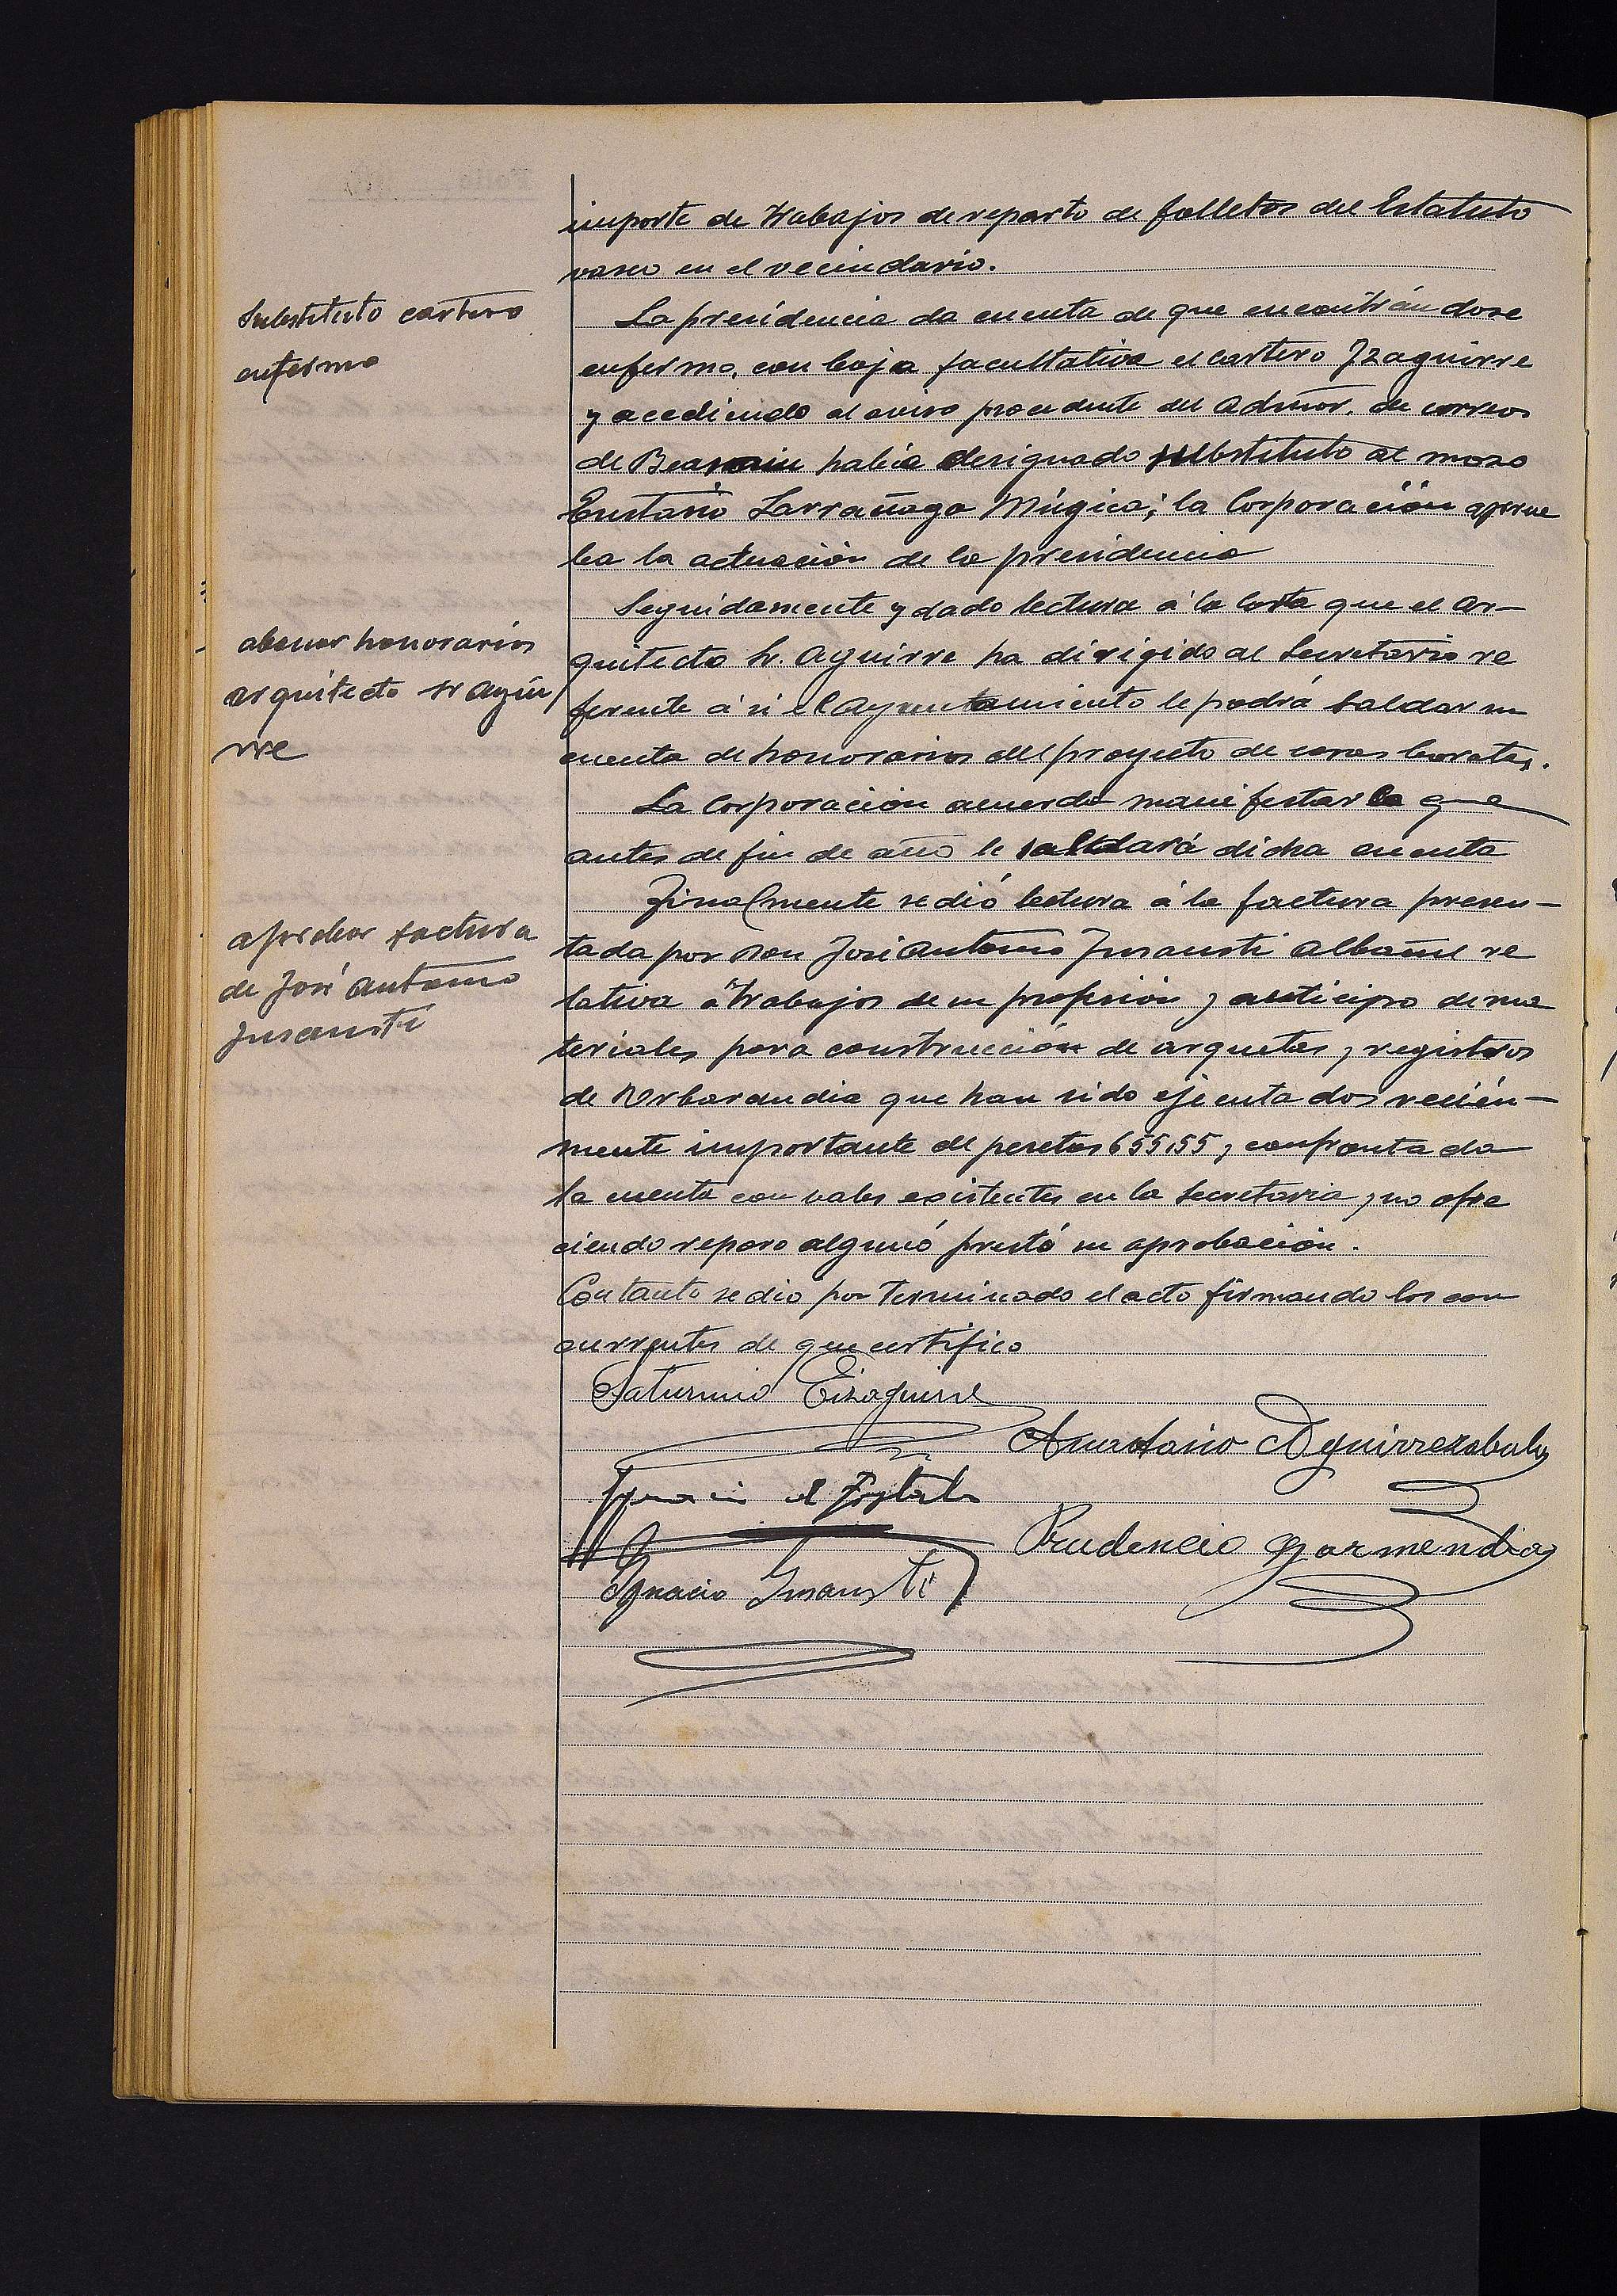 importe de trabajos de reparto de folletos del Estatuto
vasco en el vecindario.
Substituto cartero
enfermo
La presidencia da cuenta de que encontrándose
enfermo, con baja facultativa el cartero Izaguirre
y accediendo al aviso procedente del Admor. de correos
de Beasain había designado substituto al mozo
Eustasio Larrañaga Múgica; la Corporación aprue
ba la actuación de la presidencia
abonar honorarios
arquitecto Sr Agui
rre
Seguidamente y dado lectura á la carta que el Ar-
quitecto Sr. Aguirre ha dirigido al Secretario re
ferente á si el Ayuntamiento le podrá saldar su
cuenta de honorarios del proyecto de casas baratas.
La Corporación acuerda manifestarle que
antes de fin de año le saldará dicha cuenta
aprobar factura
de José Antonio
Insausti
Finalmente se dió lectura á la factura presen-
tada por Don José Antonio Insausti albañil re
lativa á trabajos de su profesión y anticipo de ma
teriales para construcción de arquetas y registros
de Urbarandia que han sido ejecutados recien-
mente importante de pesetas 655,55, confrontada
la cuenta con vales existentes en la Secretaria y no ofre
ciendo reparo alguno prestó su aprobación.
Con tanto se dio por terminado el acto firmando los con
currentes de que certifico
Saturnino Eizaguirre
Anastasio Aguirrezabala
Ignacio
Prudencio Garmendia
Ignacio Insausti